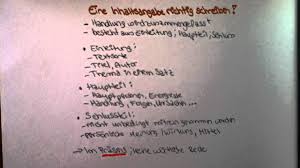 Eine Inhaltsangabe richtig schreiben!
- Handlung wird zusammengefasst
- besteht aus Einleitung, Hauptteil, Schluss
• Einleitung:
- Textsorte
- Titel, Autor
- Thema in einem Satz
• Hauptteil:
- Hauptpersonen, Ereignisse
- Handlung, Folgen,
• Schlussteil:
- nicht unbedingt
- persönliche Meinung, Wirkung, Mittel
→ Im Präsens, keine wörtliche Rede